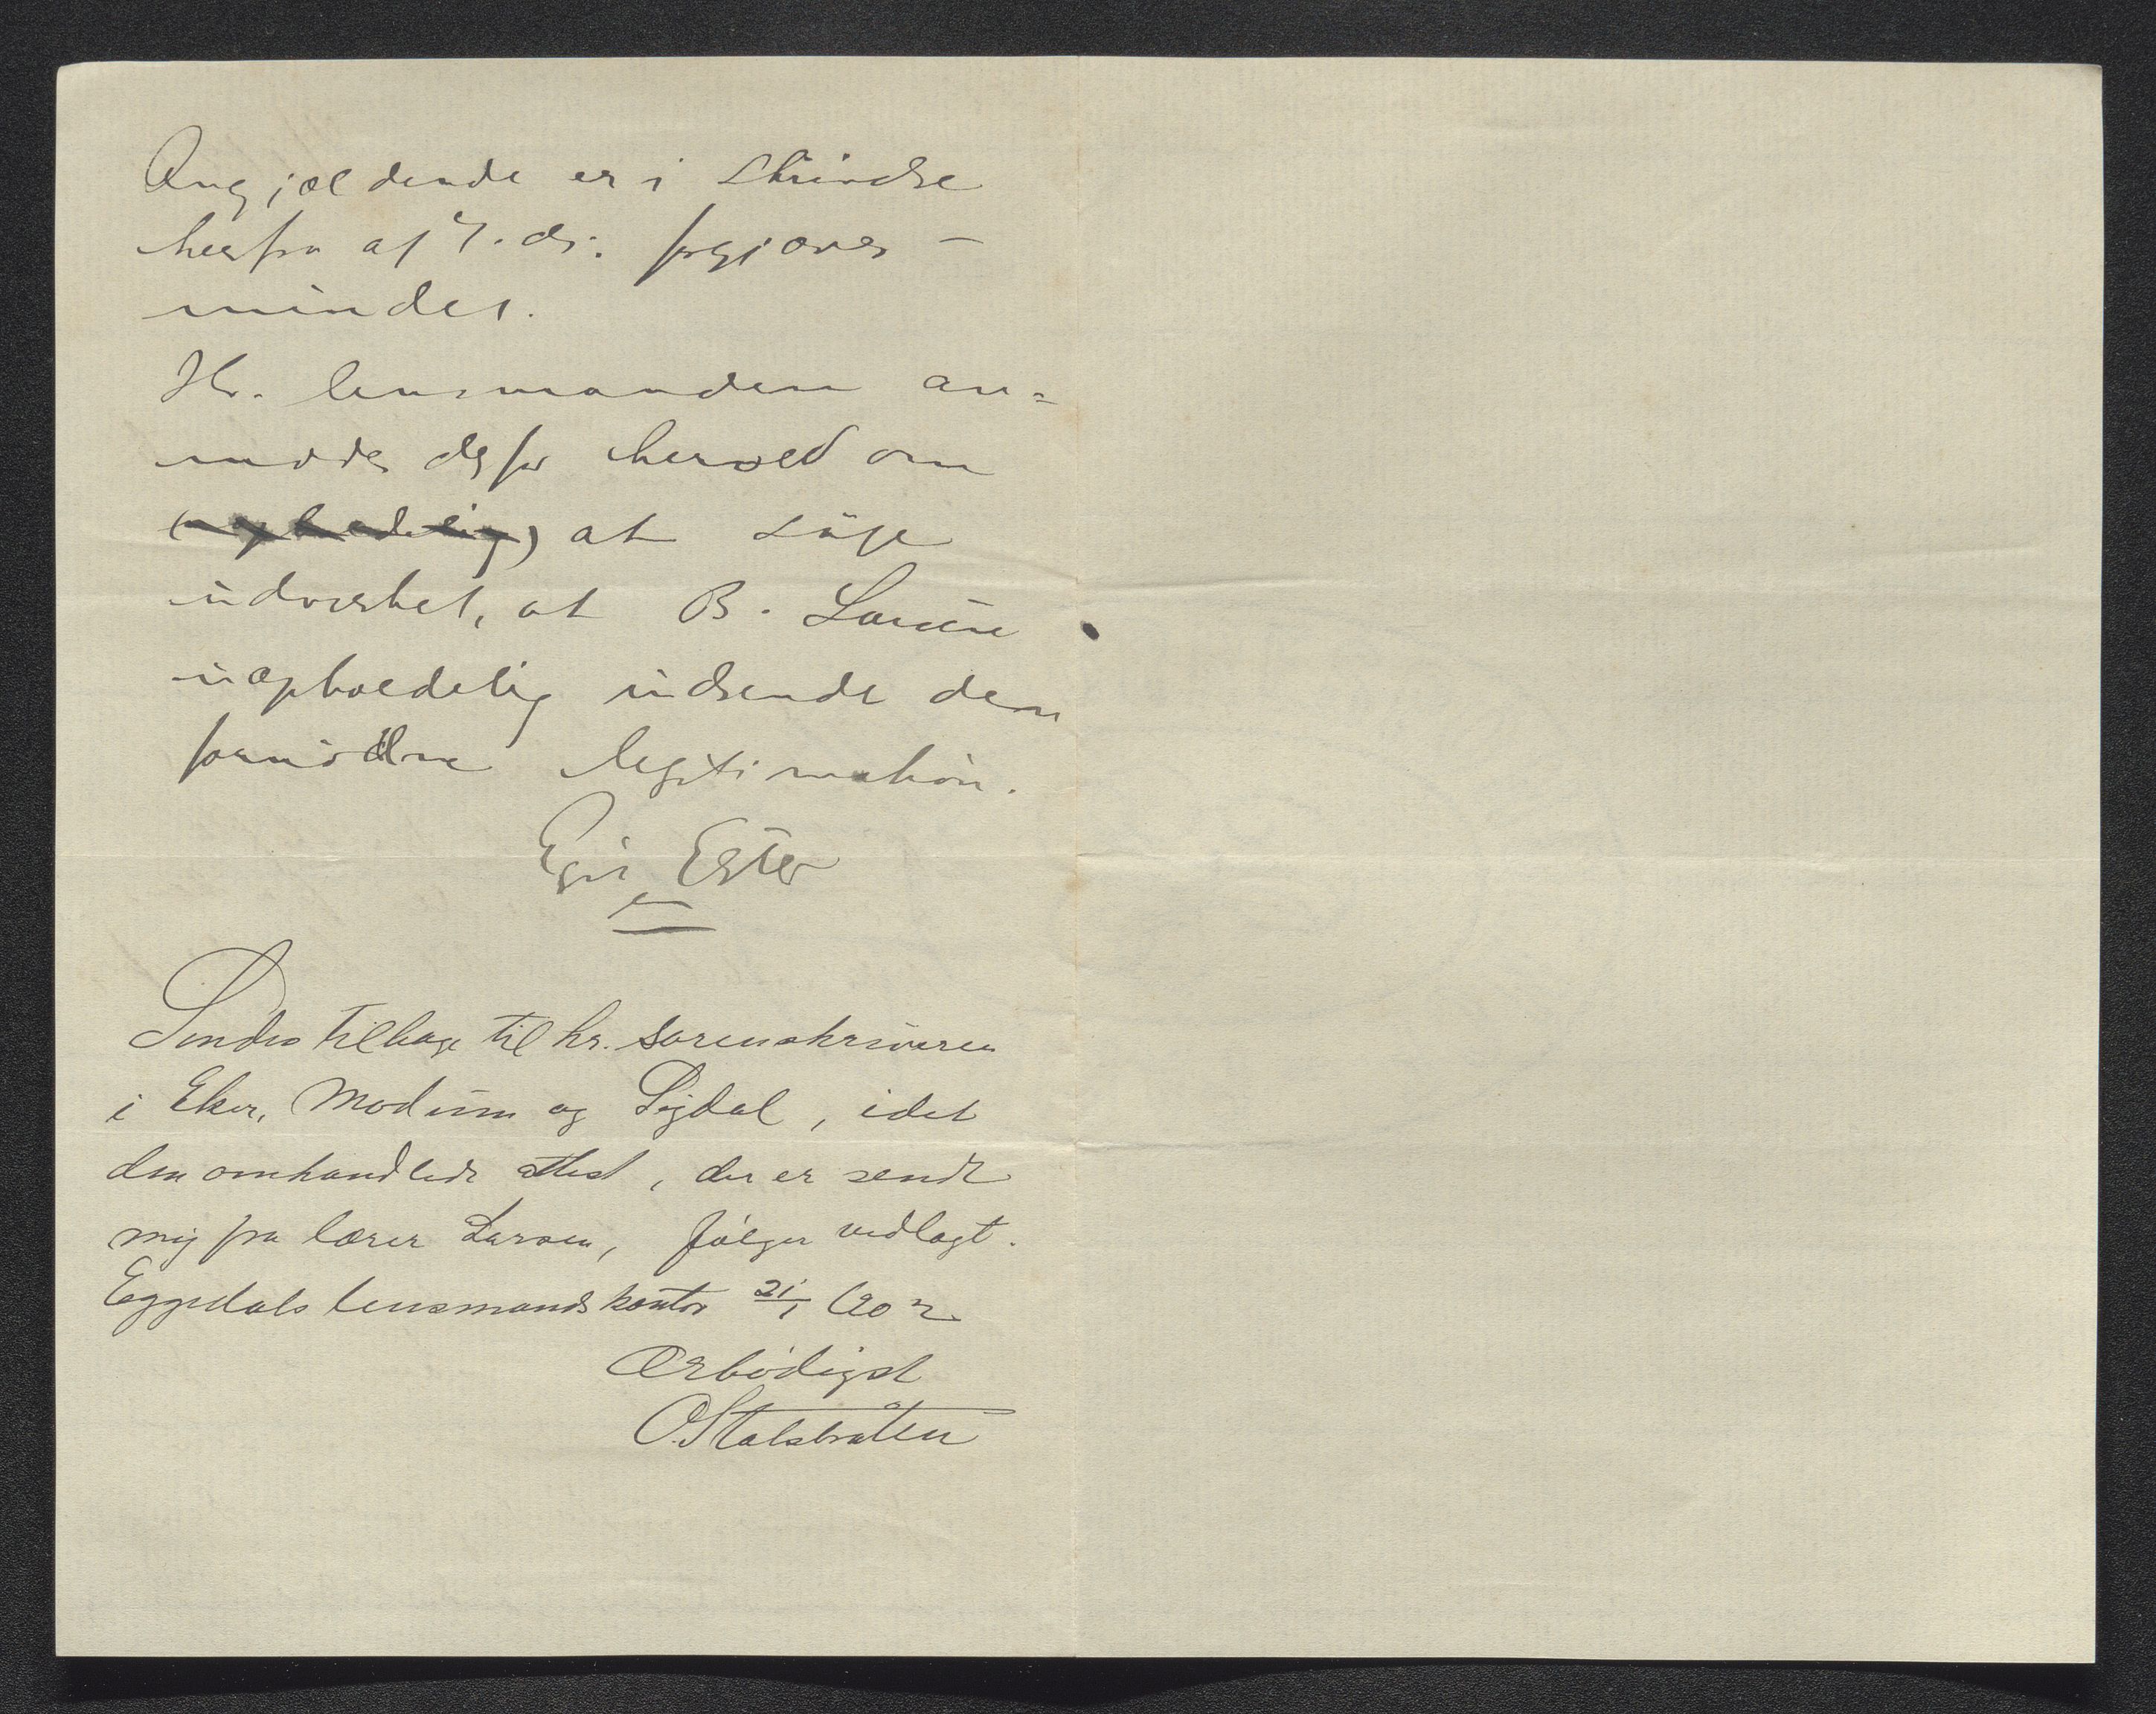 Angjældende er i skrivelse
herfra af 7. ds. forgjæves
mindet.
Hr. lensmanden an=
modes derfor herved om
(uopholdelig) at søge
udvirket, at B. Larsen
uopholdelig indsende den
fornødne legitimation.
Sendes tilbage til hr. sorenskriveren
i Eker, Modum og Sigdal, idet
den omhandlede attest, der er sendt
mig fra lærer Larsen, følger vedlagt.
Eggedals lensmandskontor 21/1 1902
Ærbødigst
O. Stalsbråten